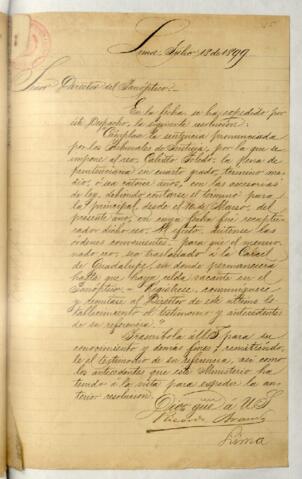 Lima, Julio 18 de 1899
Señor Director del Panóptico:
En la fecha se ha expedido por
este Despacho, la siguiente resolución:
"Cúmplase la sentencia pronunciada
por los Tribunales de Justicia, por la que se
impone al reo, Calisto Toledo, la pena de
penitenciaría en cuarto grado, término me-
dio, ó sea catorce años, con las accesorias
de ley, debiendo contarse el término para
la principal, desde el de Marzo del
presente año, en cuya fecha fué
dicho reo. Al efecto, dictense las
órdenes convenientes, para que el mencio-
nado reo, sea trasladado á la Cárcel
de Guadalupe, en donde permanecerá
hasta que haya celda vacante en el
Panóptico. Regístrese, comuníquese
y remítase al Director de este último es-
tablecimiento el testimonio y antecedentes
de su referencia."
Trascríbola á US. para su
conocimiento y demás fines; remitiendo-
le el testimonio de su referencia, así como
los antecedentes que este Ministerio ha
tenido á la vista para expedir la an-
terior resolución.
Dios gue. á US.
Lima